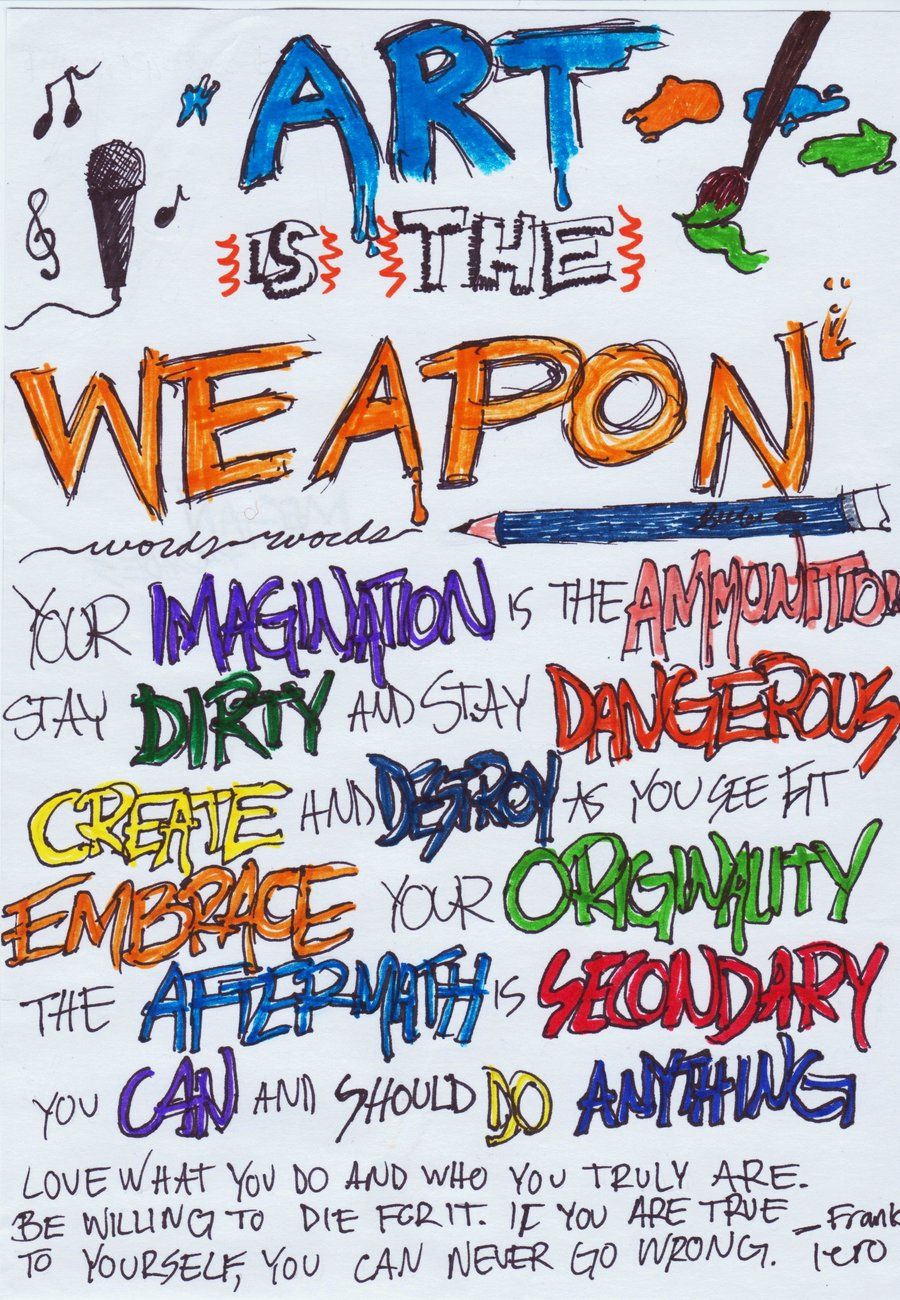 ART
IS THE
WEAPON
words words
YOUR IMAGINATION IS THE AMMUNITION
STAY DIRTY AND STAY DANGEROUS
CREATE AND DESTROY AS YOU SEE FIT
EMBRACE YOUR ORIGINALITY
THE AFTERMATH IS SECONDARY
YOU CAN AND SHOULD DO ANYTHING
LOVE WHAT YOU DO AND WHO YOU TRULY ARE.
BE WILLING TO DIE FOR IT. IF YOU ARE TRUE
TO YOURSELF, YOU CAN NEVER GO WRONG.
– Frank
Iero